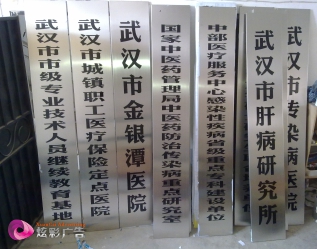 武汉市市级专业技术人员继续教育基地
武汉市城镇职工医疗保险定点医院
武汉市金银潭医院
国家中医药管理局中医药防治传染病重点研究室
中部医疗服务中心感染性疾病省级重点专科建设单位
武汉市肝病研究所
武汉市传染病医院
炫彩广告